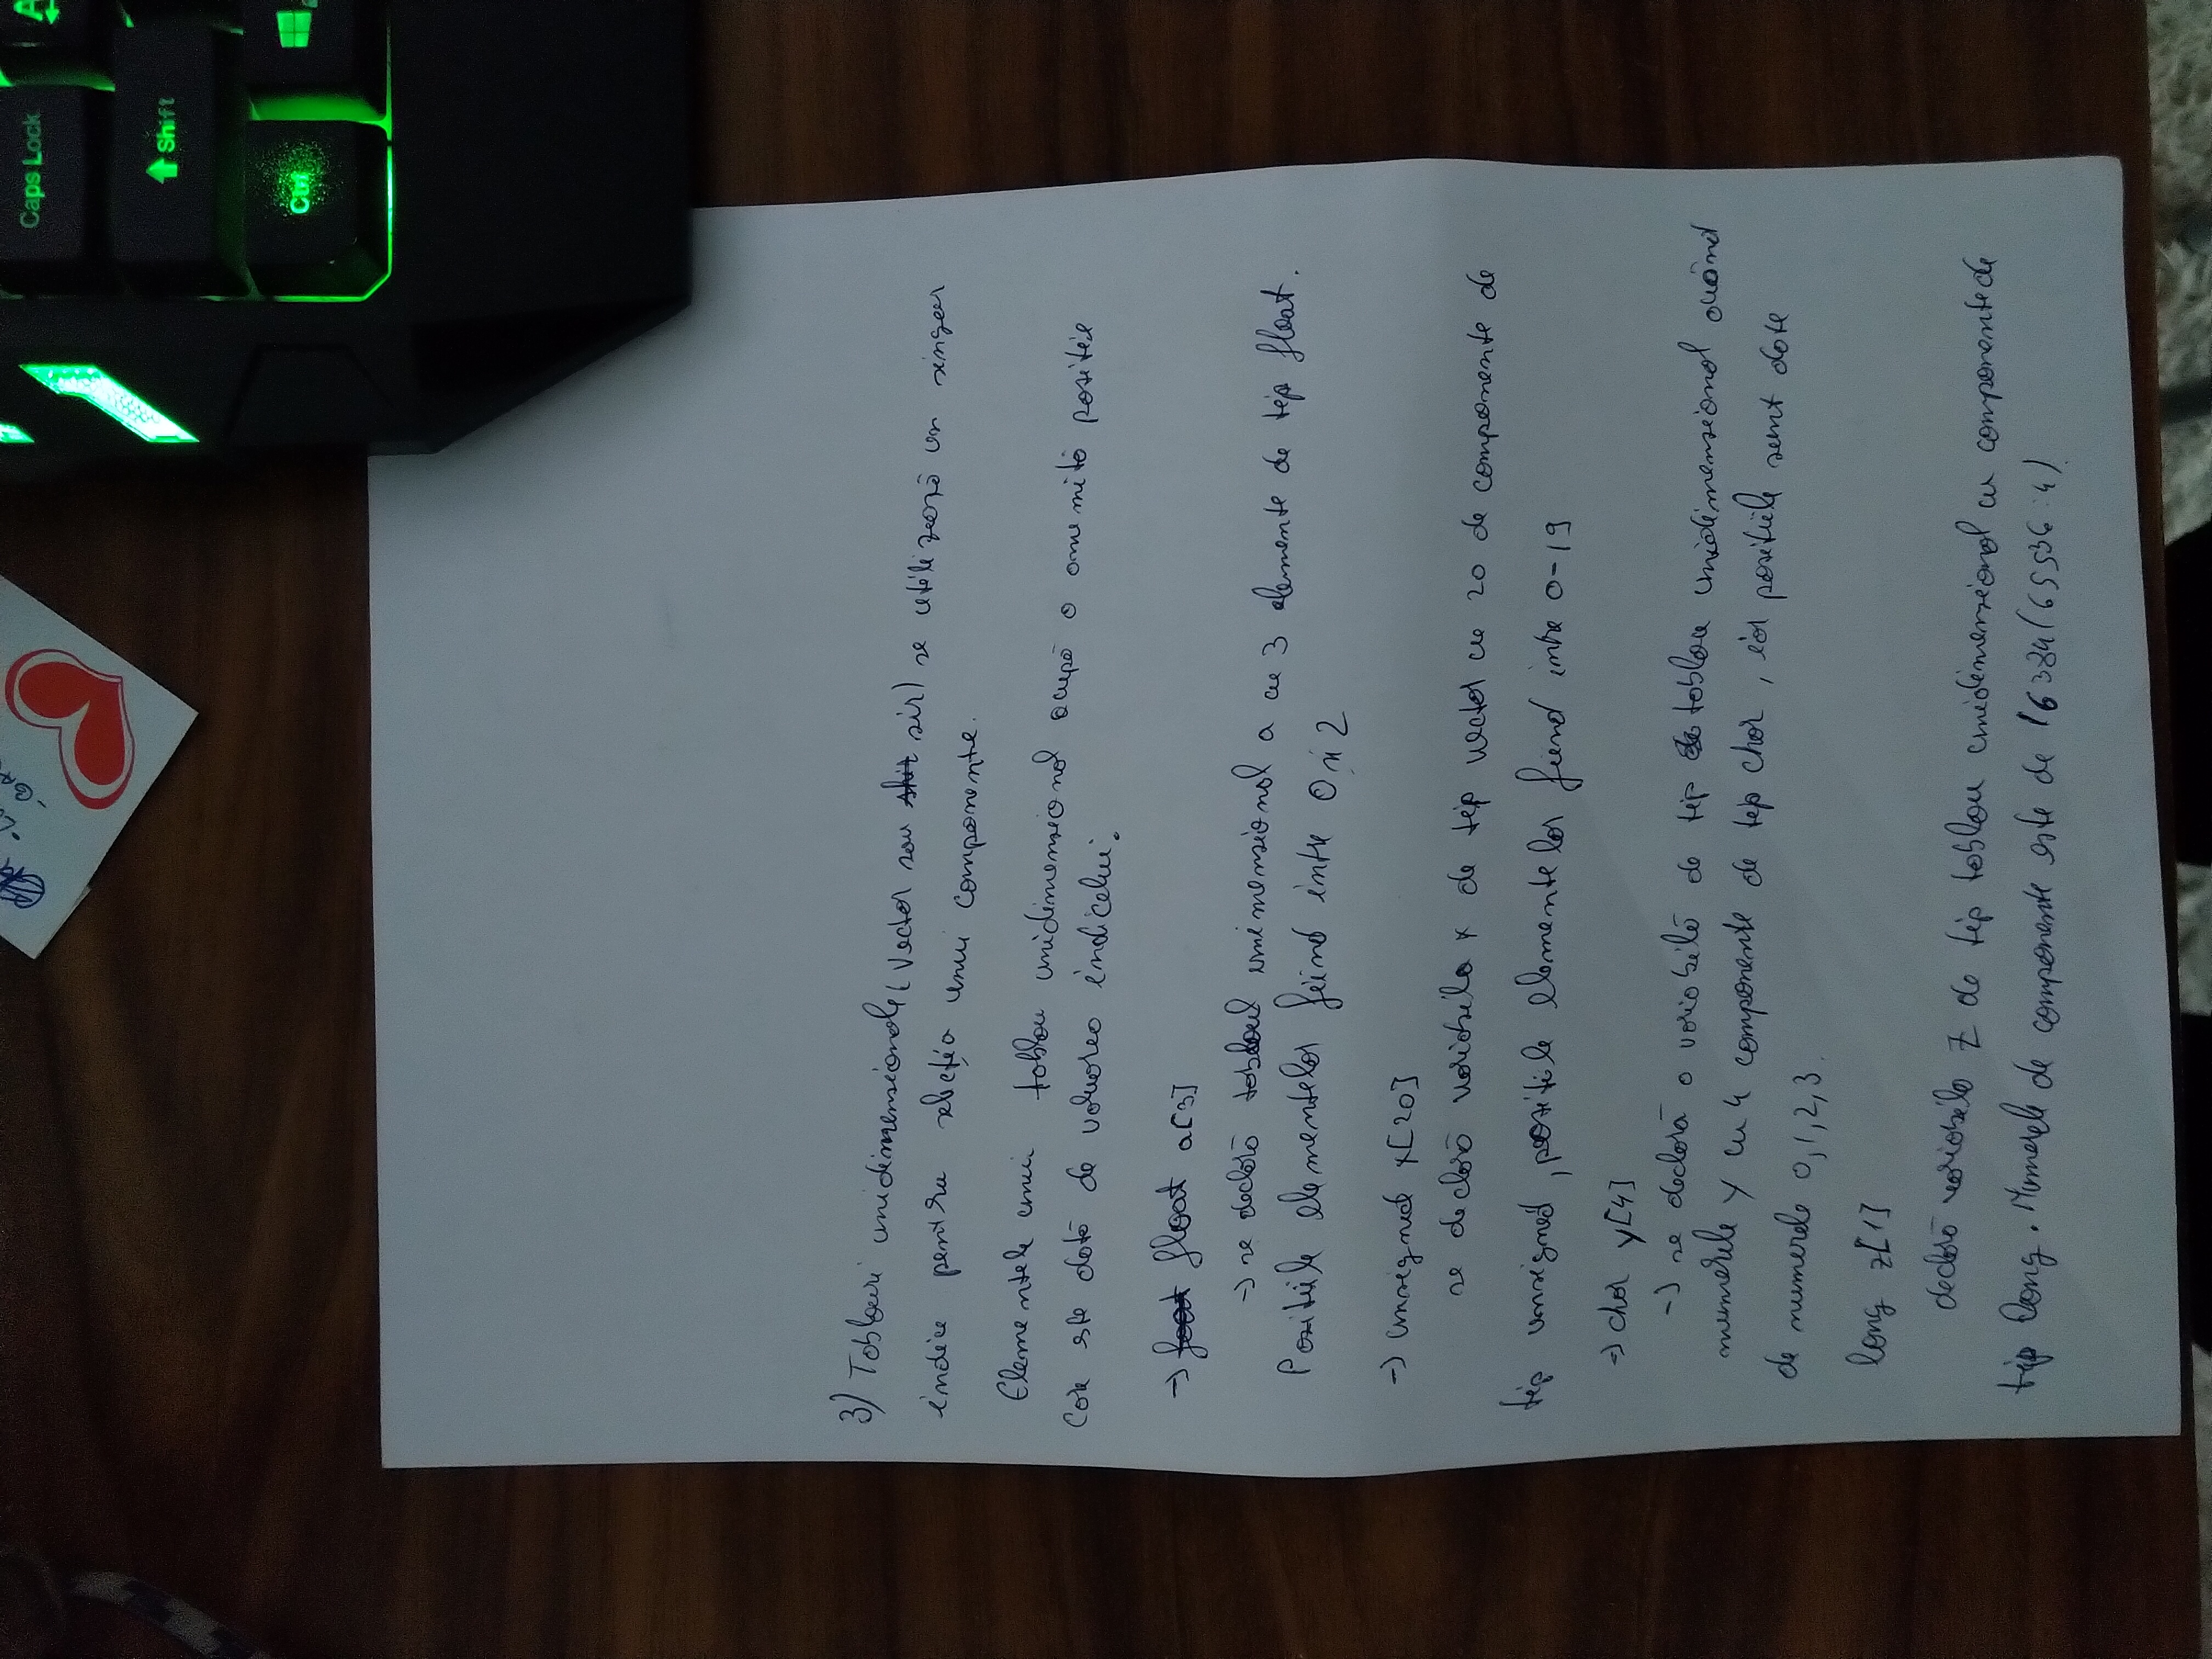 3) Tablouri unidimensionale (Vector sau șir) se utilizează un singur
indice pentru selecția unui componente.
Elementele unui tablou unidimensional ocupă o anumită poziție
Care este dată de valoarea indicelui.
→ float a[3]
→ se declară tabloul unimensional a cu 3 elemente de tip float.
Pozitiile elementelor fiind intre 0 și 2
→ unsigned x[20]
se declară variabila x de tip vector cu 20 de componente de
tip unsigned, pozitile elementelor fiind intre 0-19
→ char y[4]
→ se declară o variabilă de tip tablou unidimensional având
numerele y cu 4 componente de tip char, iar pozitiile sunt date
de numerele 0,1,2,3.
long z[1]
declară variabila z de tip tablou unidimensional cu componente de
tip long. Numerele de componente este de 16384(65536:4)
Caps Lock
Shift
Ctrl
A